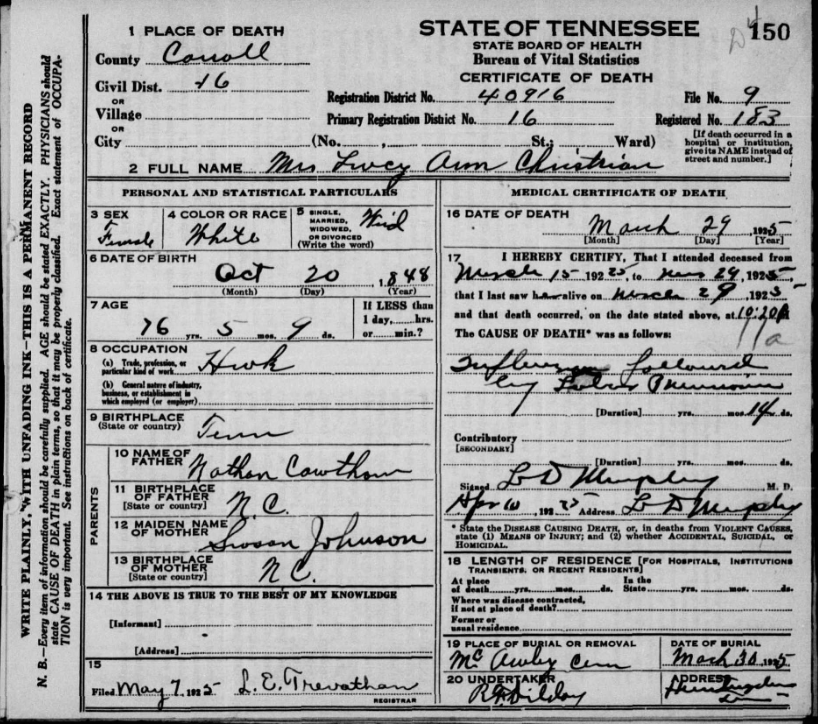 1 PLACE OF DEATH
County Carroll
Civil Dist. 16
OR
Village
OR
City (No. , St.; Ward)
STATE OF TENNESSEE
STATE BOARD OF HEALTH
Bureau of Vital Statistics
CERTIFICATE OF DEATH
150
Registration District No. 40916 File No. 9
Primary Registration District No. 16 Registered No. 183
[If death occurred in a
hospital or institution,
give its NAME instead of
street and number.]
2 FULL NAME Mrs Lucy Ann Christian
PERSONAL AND STATISTICAL PARTICULARS
3 SEX
Female
4 COLOR OR RACE
White
5 SINGLE,
MARRIED,
WIDOWED,
OR DIVORCED
(Write the word)
Wid
6 DATE OF BIRTH
Oct 20 1848
(Month) (Day) (Year)
7 AGE
76 yrs. 5 mos. 9 ds.
If LESS than
1 day,....hrs.
or......min.?
8 OCCUPATION
(a) Trade, profession, or
particular kind of work
Hwk
(b) General nature of industry,
business, or establishment in
which employed (or employer)
9 BIRTHPLACE
(State or country)
Tenn
PARENTS
10 NAME OF
FATHER
Nathan Cawthorn
11 BIRTHPLACE
OF FATHER
[State or country]
N.C.
12 MAIDEN NAME
OF MOTHER
Susan Johnson
13 BIRTHPLACE
OF MOTHER
[State or country]
N.C.
14 THE ABOVE IS TRUE TO THE BEST OF MY KNOWLEDGE
[Informant]
[Address]
15
Filed May 7, 1925 L. E. Trevathan
REGISTRAR
MEDICAL CERTIFICATE OF DEATH
16 DATE OF DEATH
March 29 1925
[Month] [Day] [Year]
17 I HEREBY CERTIFY, That I attended deceased from
March 15 1925, to 29, 1925,
that I last saw her alive on March 29 1925
and that death occurred, on the date stated above, at 10:20P
The CAUSE OF DEATH* was as follows:
11a
Influenza followed
by Lobar Pneumonia
[Duration] yrs. mos. 14 ds.
Contributory
[SECONDARY]
[Duration] yrs. mos. ds.
Signed L D Murphey M. D.
Apr 10, 1925 Address L D Murphey
* State the DISEASE CAUSING DEATH, or, in deaths from VIOLENT CAUSES,
state (1) MEANS OF INJURY; and (2) whether ACCIDENTAL, SUICIDAL, or
HOMICIDAL.
18 LENGTH OF RESIDENCE [FOR HOSPITALS, INSTITUTIONS
TRANSIENTS, OR RECENT RESIDENTS]
At place
of death yrs. mos. ds.
In the
State yrs. mos. ds.
Where was disease contracted,
if not at place of death?
Former or
usual residence
19 PLACE OF BURIAL OR REMOVAL
Cem
DATE OF BURIAL
March 30, 1925
20 UNDERTAKER
Dilday
ADDRESS
WRITE PLAINLY, WITH UNFADING INK—THIS IS A PERMANENT RECORD
N. B.—Every item of information should be carefully supplied. AGE should be stated EXACTLY. PHYSICIANS should
state CAUSE OF DEATH in plain terms, so that it may be properly classified. Exact statement of OCCUPA-
TION is very important. See instructions on back of certificate.